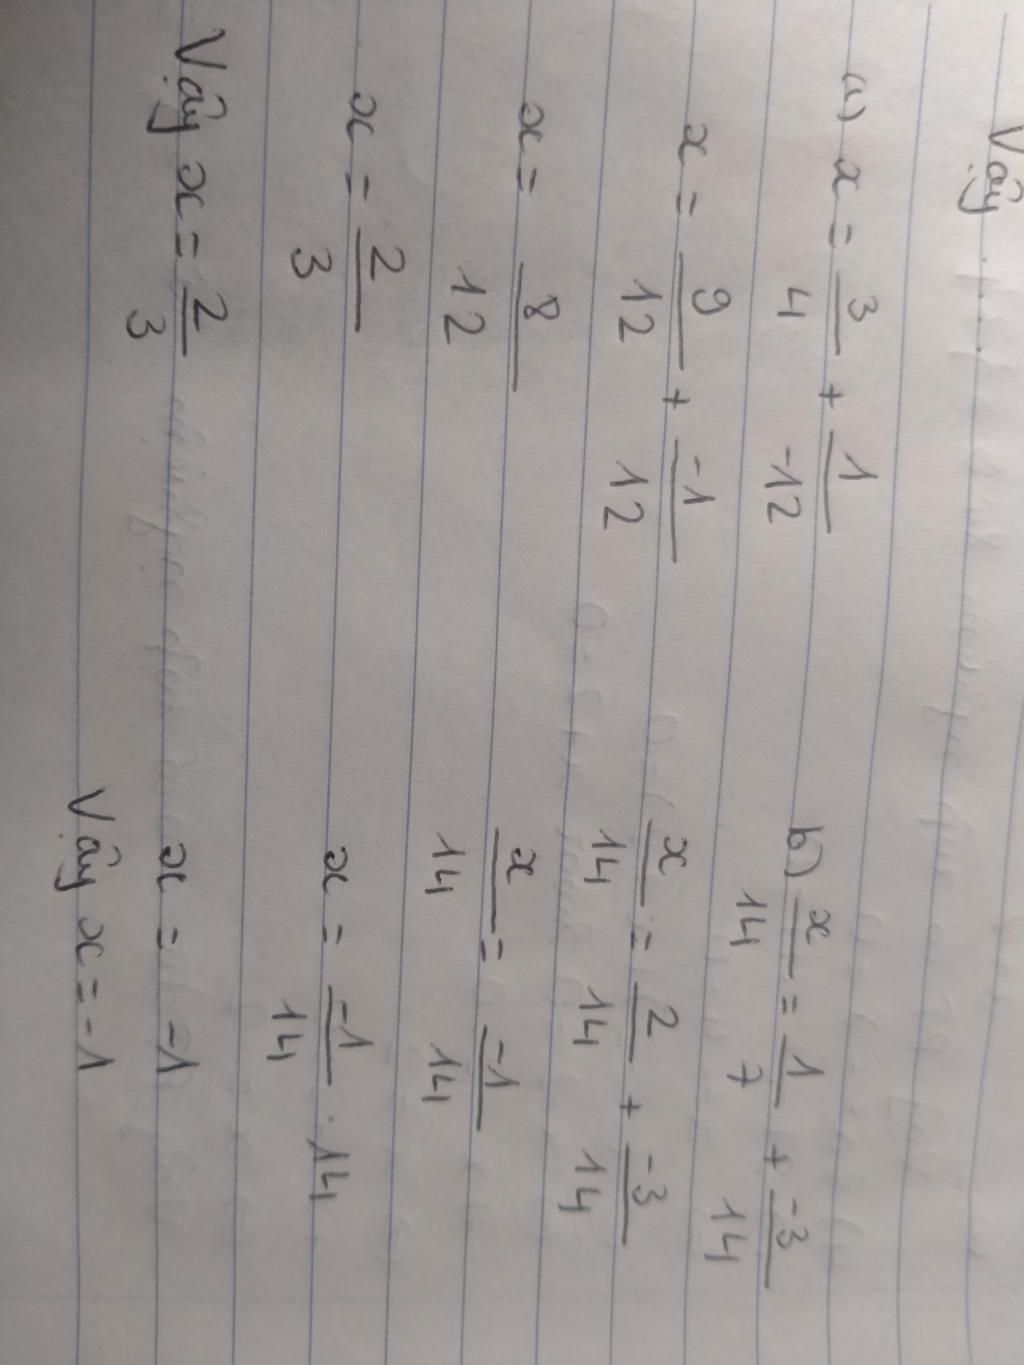 Vậy .....
a) x = 3/4 + 1/-12
x = 9/12 + -1/12
x = 8/12
x = 2/3
Vậy x = 2/3
b) x/14 = 1/7 + -3/14
x/14 = 2/14 + -3/14
x/14 = -1/14
x = -1/14 . 14
x = -1
Vậy x = -1